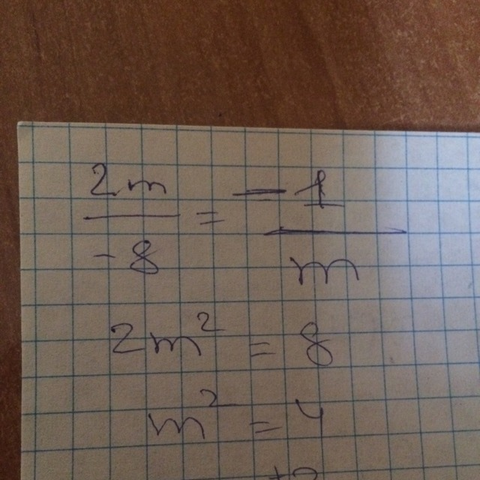 2m/-8 = -1/m
2m² = 8
m² = 4